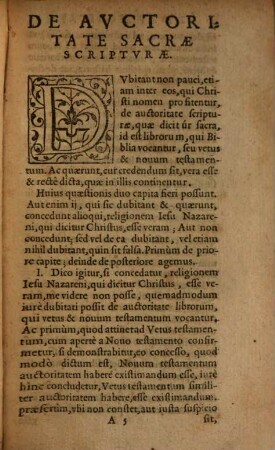 DE AVCTORI-
TATE SACRÆ
SCRIPTVRÆ.
DVbitant non pauci, eti-
am inter eos, qui Chri-
sti nomen profitentur,
de auctoritate scriptu-
ræ, quæ dicitúr sacra,
id est librorum, qui Bi-
blia vocantur, seu vetus
& nouum testamen-
tum. Ac quærunt, cur credendum sit, vera esse
& rectè dicta, quæ in illis continentur.
Huius quæstionis duo capita fieri possunt.
Aut enim ij, qui sic dubitant & quærunt,
concedunt alioqui, religionem Iesu Nazare-
ni, qui dicitur Christus, esse veram; Aut non
concedunt; sed vel de ea dubitant, vel etiam
nihil dubitant, quin sit falsa. Primùm de prio-
re capite; deinde de posteriore agemus.
I. Dico igitur, si concedatur, religionem
Iesu Nazareni, qui dicitur Christus, esse
veram, me videre non posse, quemadmodum
iurè dubitari possit de auctoritate librorum,
qui vetus & nouum testamentum vocantur.
Ac primùm, quod attinet ad Vetus testamen-
tum, cum apertè à Nouo testamento confir-
metur, si demonstrabitur, eo concesso, quod
modò dictum est, Nouum testamentum
auctoritatem habere existimandum esse, iurè
hinc concludetur, Vetus testamentum simili-
ter auctoritatem habere, esse existimandum.
præsertim, vbi non constet, aut iusta suspicio
A 5
sit,